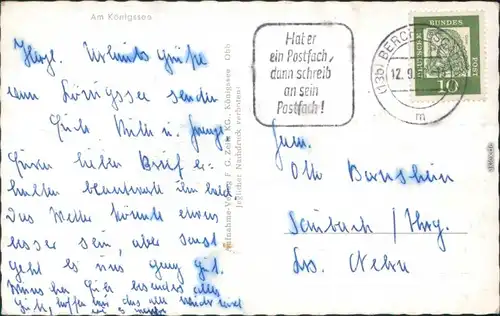 Am Königssee
Herzl. Urlaubs Grüße
vom Königssee senden
Euch Willi u.
Euren lieben Brief er-
halten beantworte ihn bald.
Das Wetter könnte etwas
besser sein, aber sonst
geht es uns ganz gut.
Euch, hoffen wir das alles wieder
Aufnahme-Verlag F. G. Zeitz KG., Königssee Obb
Jeglicher Nachdruck verboten!
Hat er
ein Postfach,
dann schreib
an sein
Postfach!
(13b) BERCHTESG
12.9.
m
DEUTSCHE BUNDESPOST
10
Fam.
Otto Bernstein
Saubach / Thrg.
Krs. Nebra